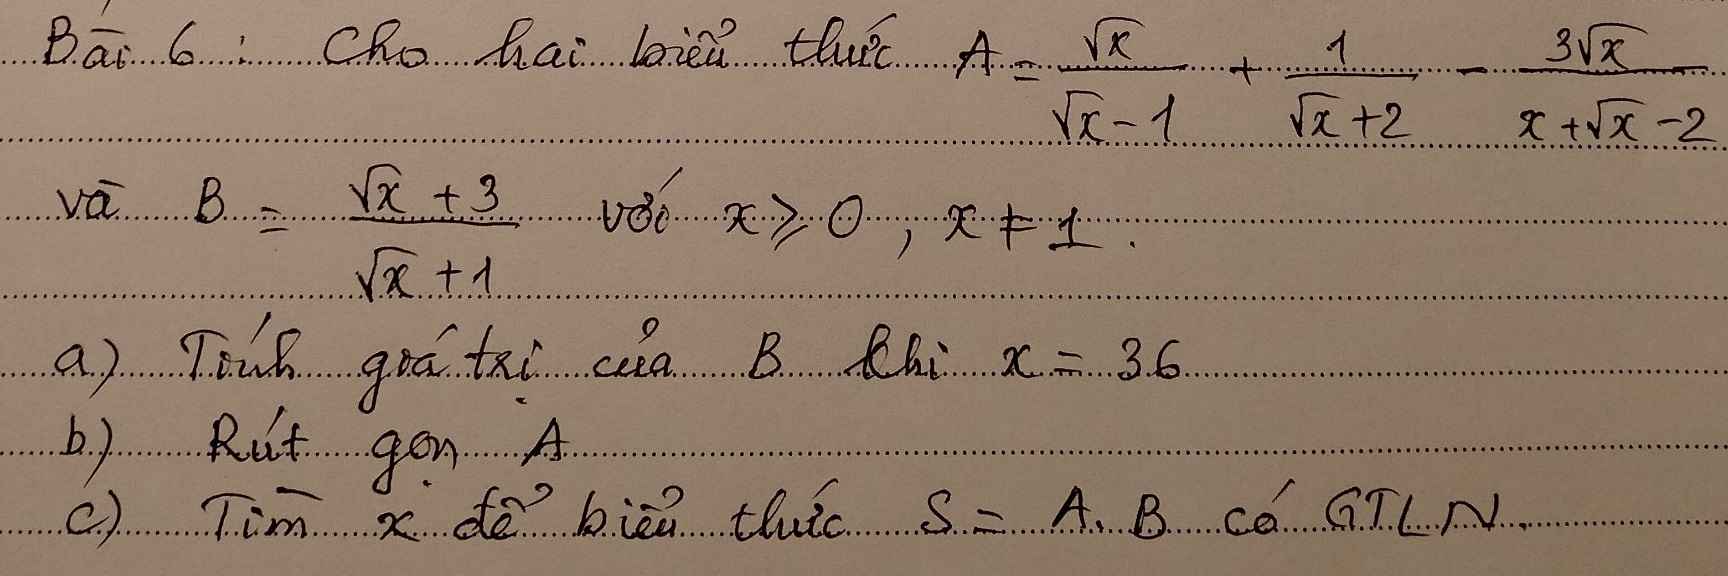 Bài 6 : Cho hai biểu thức A = \frac{\sqrt{x}}{\sqrt{x}-1} + \frac{1}{\sqrt{x}+2} - \frac{3\sqrt{x}}{x+\sqrt{x}-2}
và B = \frac{\sqrt{x}+3}{\sqrt{x}+1} với x ⩾ 0 , x ≠ 1 .
a) Tính giá trị của B khi x = 36
b) Rút gọn A
c) Tìm x để biểu thức S = A. B có GTLN.